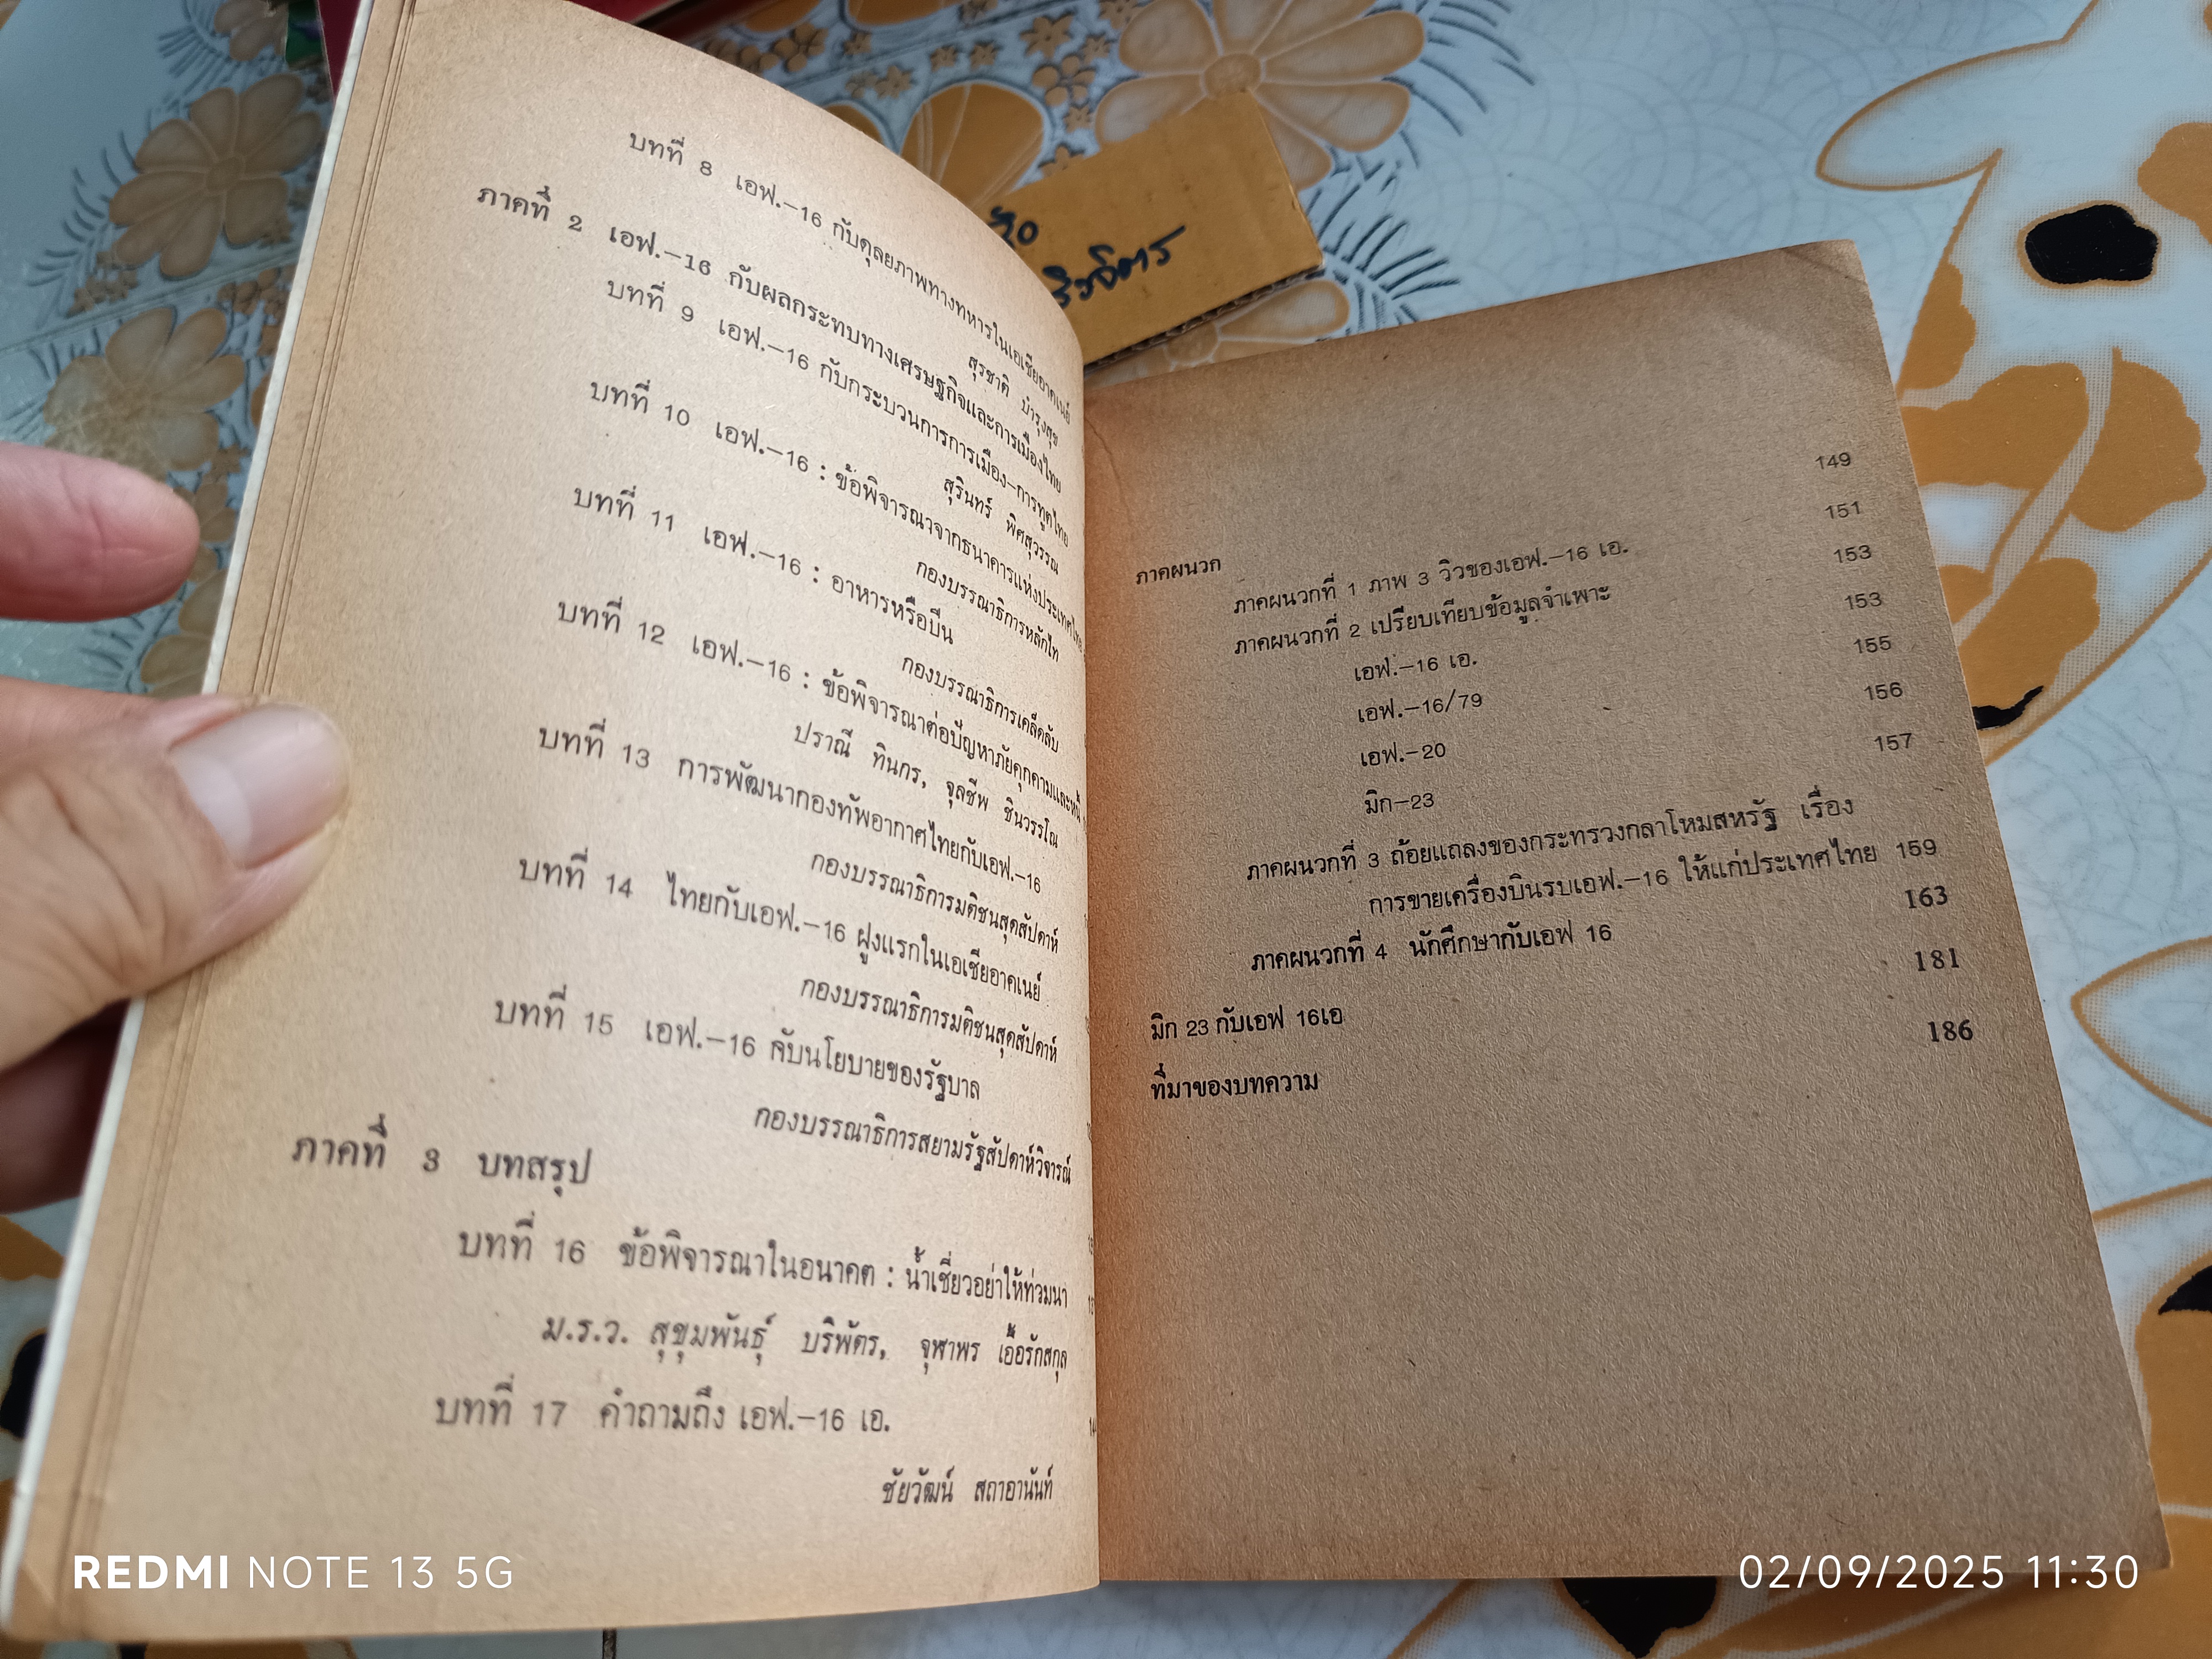 บทที่ 8 เอฟ.-16 กับดุลยภาพทางทหารในเอเชียอาคเนย์
สุรชาติ บำรุงสุข
ภาคที่ 2 เอฟ.-16 กับผลกระทบทางเศรษฐกิจและการเมืองไทย
บทที่ 9 เอฟ.-16 กับกระบวนการการเมือง-การทูตไทย
สุรินทร์ พิศสุวรรณ
บทที่ 10 เอฟ.-16 : ข้อพิจารณวจากธนาคารแห่งประเทศไทย
กองบรรณาธิการหลักไท
บทที่ 11 เอฟ.-16 : อาหารหรือปืน
กองบรรณาธิการเคล็ดลับ
บทที่ 12 เอฟ.-16 : ข้อพิจารณาต่อปัญหาภัยคุกคามและหนี้
ปราณี ทินกร, จุลชีพ ชินวรรโณ
บทที่ 13 การพัฒนากองทัพอากาศไทยกับเอฟ.-16
กองบรรณาธิการมติชนสุดสัปดาห์
บทที่ 14 ไทยกับเอฟ.-16 ฝูงแรกในเอเชียอาคเนย์
กองบรรณาธิการมติชนสุดสัปดาห์
บทที่ 15 เอฟ.-16 กับนโยบายของรัฐบาล
กองบรรณาธิการสยามรัฐสัปดาห์วิจารณ์
ภาคที่ 3 บทสรุป
บทที่ 16 ข้อพิจารณาในอนาคต : น้ำเชี่ยวอย่าให้ท่วมนา
ม.ร.ว. สุขุมพันธุ์ บริพัตร, จุฬาพร เอื้อรักสกุล
บทที่ 17 คำถามถึง เอฟ.-16 เอ.
ชัยวัฒน์ สถาอานันท์
ภาคผนวก 149
ภาคผนวกที่ 1 ภาพ 3 วิวของเอฟ.-16 เอ. 151
ภาคผนวกที่ 2 เปรียบเทียบข้อมูลจำเพาะ 153
เอฟ.-16 เอ. 153
เอฟ.-16/79 155
เอฟ.-20 156
มิก-23 157
ภาคผนวกที่ 3 ถ้อยแถลงของกระทรวงกลาโหมสหรัฐ เรื่อง
การขายเครื่องบินรบเอฟ.-16 ให้แก่ประเทศไทย 159
ภาคผนวกที่ 4 นักศึกษากับเอฟ 16 163
มิก 23 กับเอฟ 16เอ 181
ที่มาของบทความ 186
REDMI NOTE 13 5G
02/09/2025 11:30